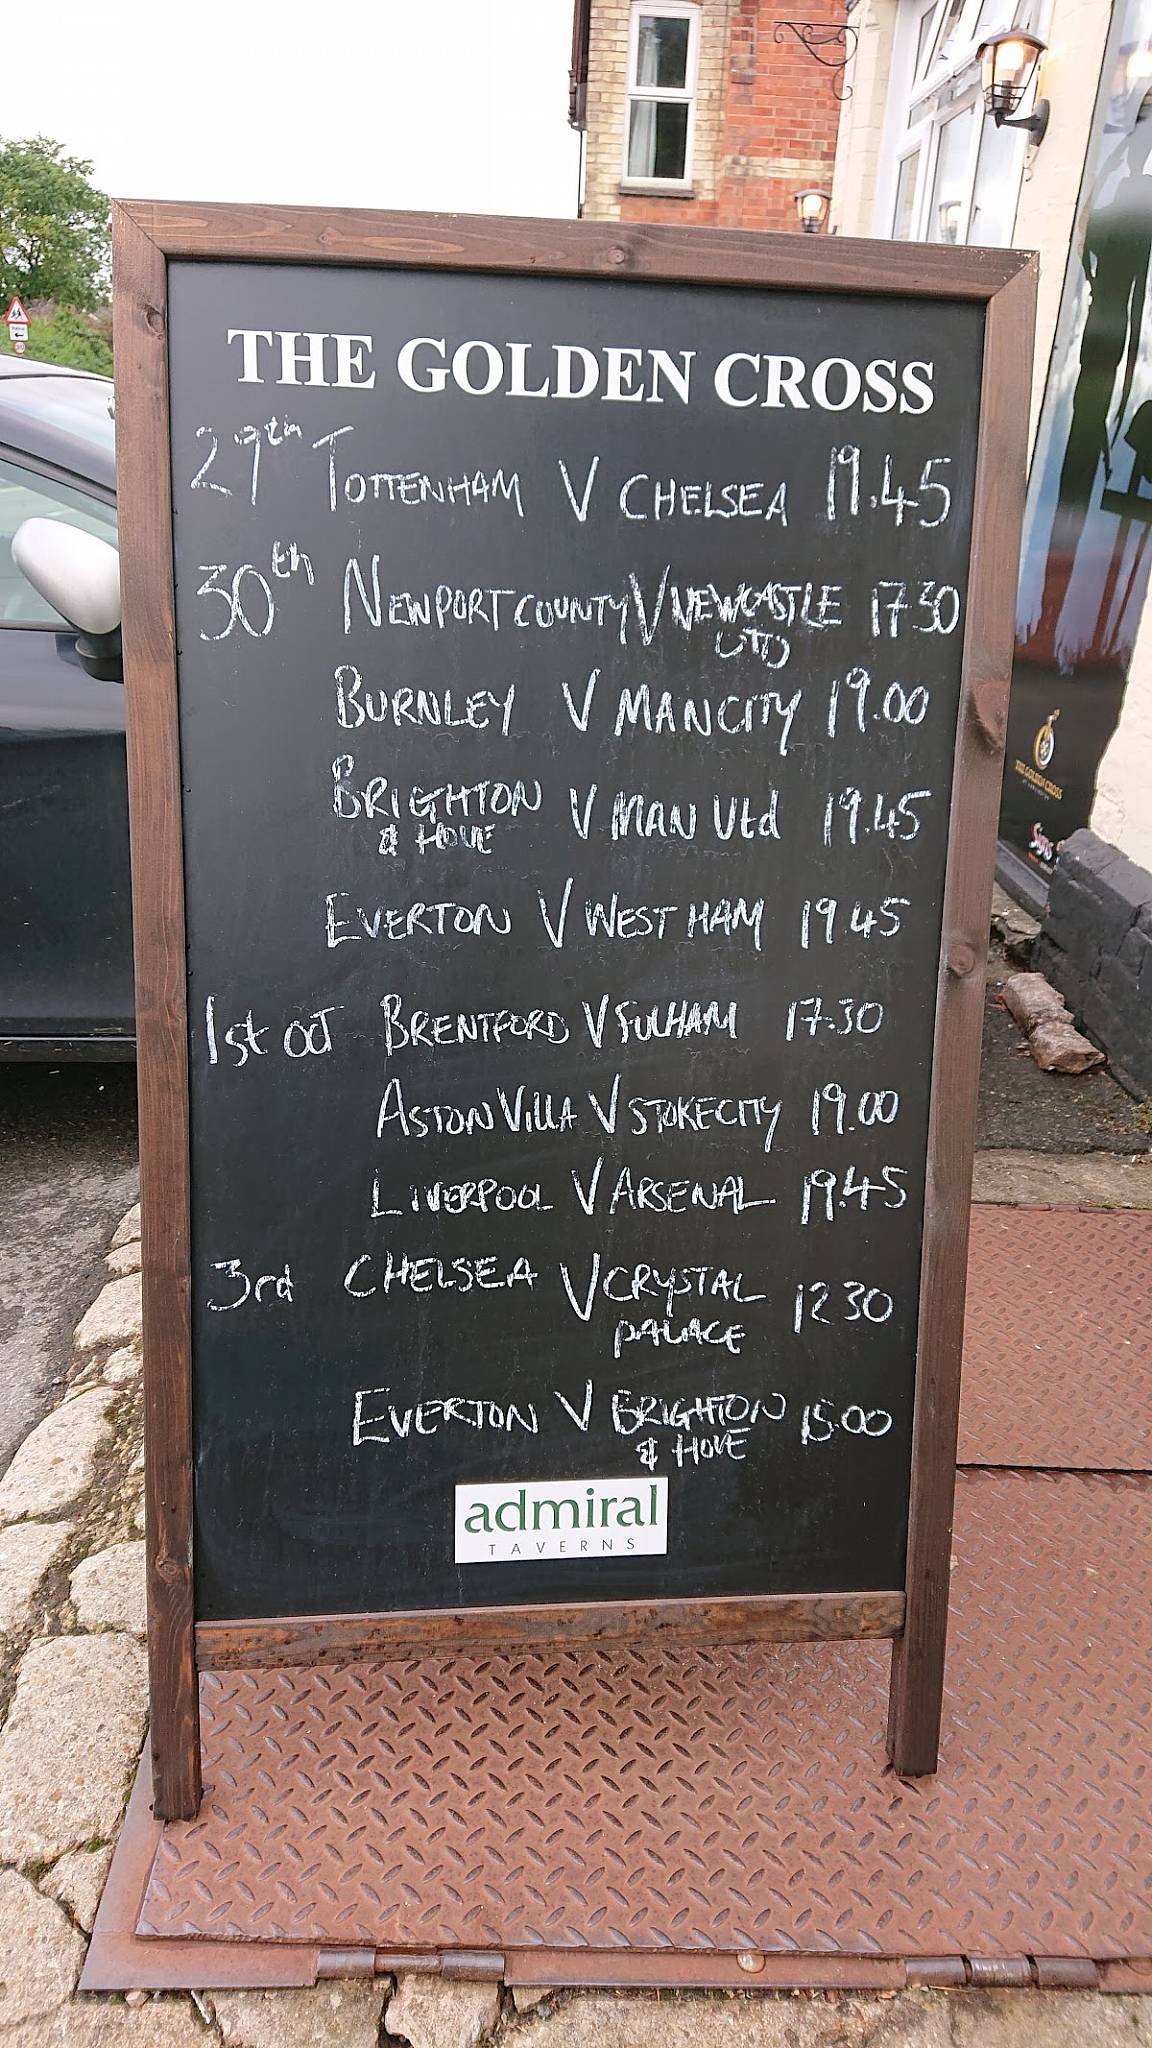 THE GOLDEN CROSS
29th TOTTENHAM V CHELSEA 19.45
30th NEWPORT COUNTY V NEWCASTLE 17.30
UTD
BURNLEY V MAN CITY 19.00
BRIGHTON V MAN Utd 19.45
& HOVE
EVERTON V WEST HAM 19.45
1st OCT BRENTFORD V FULHAM 17.30
ASTON VILLA V STOKE CITY 19.00
LIVERPOOL V ARSENAL 19.45
3rd CHELSEA V CRYSTAL 12 30
PALACE
EVERTON V BRIGHTON 15.00
& HOVE
admiral
TAVERNS
THE GOLDEN CROSS